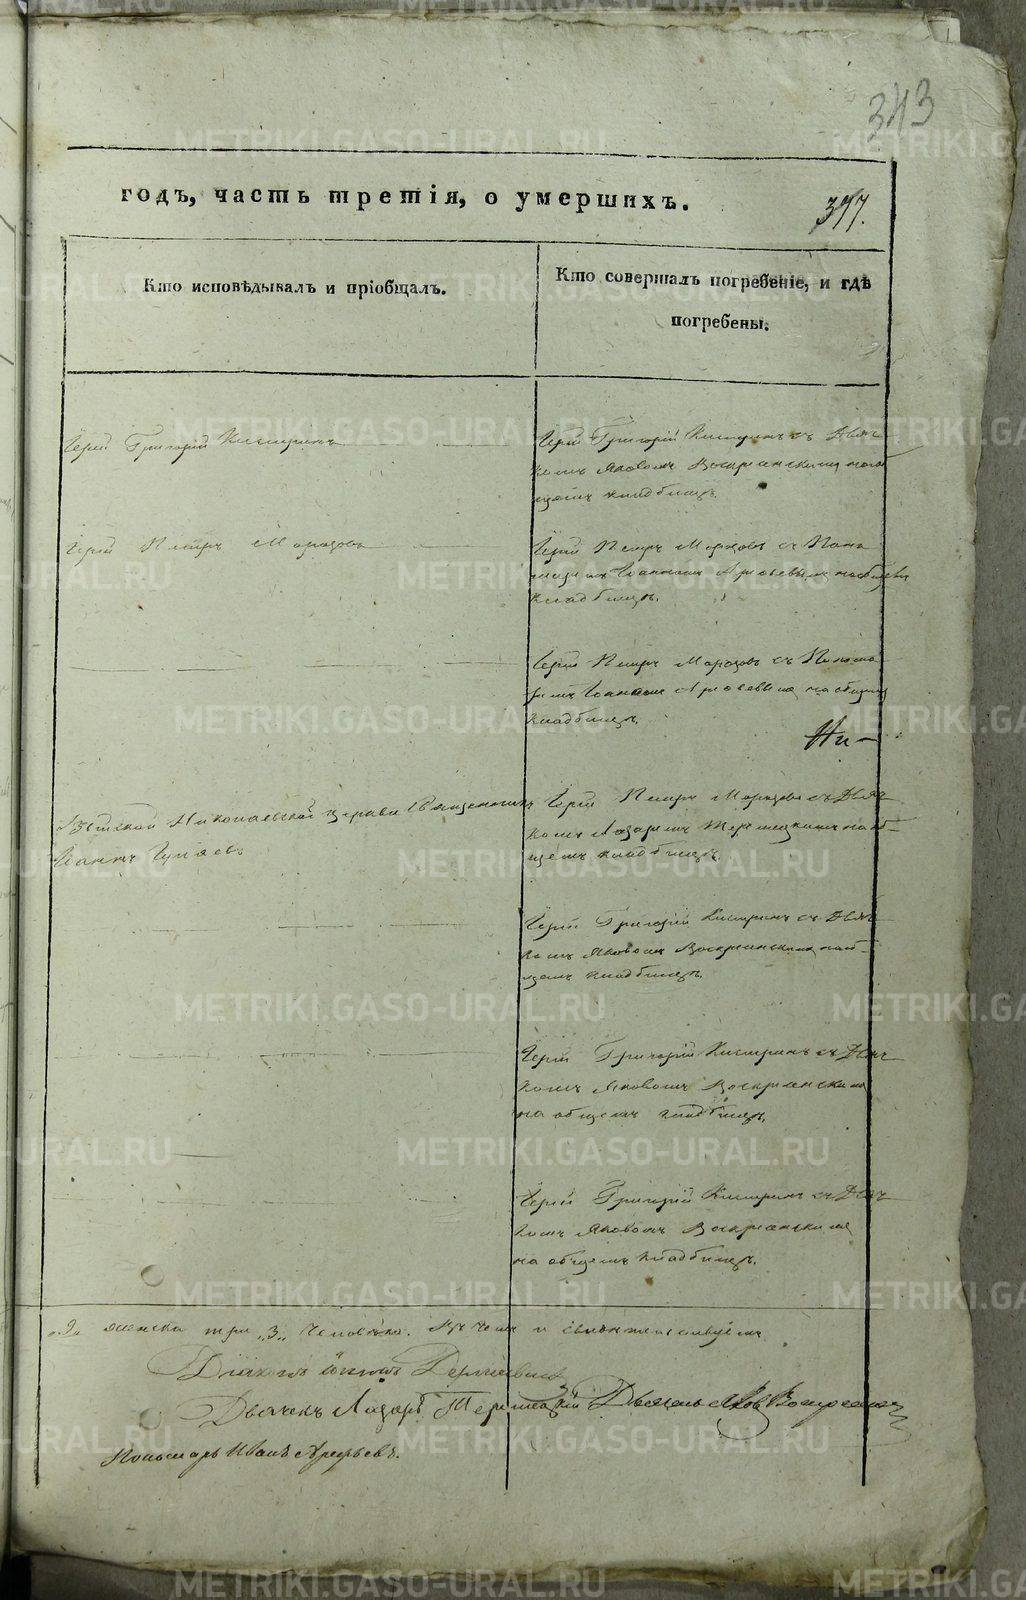 343
годъ, часть третія, о умершихъ.
377.
Кто исповѣдывалъ и пріобщалъ.
Кто совершалъ погребеніе, и гдѣ
погребены.
Іерей Григорій Кистринъ
Іерей Григорій Кистринъ съ Дьяч
комъ Яковомъ Воскресенскимъ на об
щемъ кладбищѣ.
Іерей Петръ Морозовъ
Іерей Петръ Морозовъ съ Поно
маремъ Іоанномъ Арефьевымъ на общемъ
кладбищѣ.
Іерей Петръ Морозовъ съ Понома
ремъ Іоанномъ Арефьевымъ на общемъ
кладбищѣ.
Ни-
Николаевской церкви Священникъ
Іоаннъ
Іерей Петръ Морозовъ съ Дьяч
комъ Лазаремъ Терлецкимъ на об-
щемъ кладбищѣ.
Іерей Григорій Кистринъ съ Дьяч
комъ Яковомъ Воскресенскимъ на об-
щемъ кладбищѣ.
Іерей Григорій Кистринъ съ Дьяч
комъ Яковомъ Воскресенскимъ
на общемъ кладбищѣ.
Іерей Григорій Кистринъ съ Дьяч
комъ Яковомъ Воскресенскимъ
на общемъ кладбищѣ.
женска три „3„ человѣка. Въ чемъ и свидѣтельствуемъ
Дьячекъ Лазарь Терлецкій Яковъ Воскресенскій
Пономарь Иванъ Арефьевъ.
METRIKI.GASO-URAL.RU